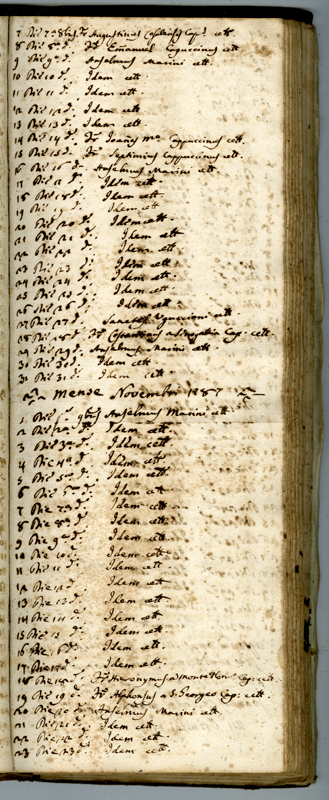 7 Die 7 8bris Fr Augustinus Cap: cett.
8 Die 8 d. Fr Emanuel Capuccinus cett.
9 Die 9 d. Anselmus Marini cett.
10 Die 10 d. Idem cett.
11 Die 11 d. Idem cett.
12 Die 12 d. Idem cett
13 Die 13 d. Idem cett.
14 Die 14 d. Fr Joañes Ma. Cappuccinus cett.
15 Die 15 d. Fr Septimius Cappuccinus cett.
16 Die 16 d. Anselmus Marini cett
17 Die 17 d. Idem cett
18 Die 18 d. Idem cett
19 Die 19 d. Idem cett
20 Die 20 d. Idem cett.
21 Die 21 d. Idem cett
22 Die 22 d. Idem cett.
23 Die 23 d. Idem cett
24 Die 24 d. Idem cett.
25 Die 25 d. Idem cett
26 Die 26 d. Idem cett
27 Die 27 d. Uguccioni cett
28 Die 28 d. Fr Cap: cett.
29 Die 29 d. Anselmus Marini cett.
30 Die 30 d. Idem cett
31 Die 31 d. Idem cett.
Mense Novembri 1787
1 Die 1 9bris Anselmus Marini cett.
2 Die 2 d. Idem cett.
3 Die 3 d. Idem cett.
4 Die 4 d. Idem cett
5 Die 5 d. Idem cett
6 Die 6 d. Idem cett
7 Die 7 d. Idem cett
8 Die 8 d. Idem cett.
9 Die 9 d. Idem cett.
10 Die 10 d. Idem cett
11 Die 11 d. Idem cett.
12 Die 12 d. Idem cett
13 Die 13 d. Idem cett
14 Die 14 d. Idem cett.
15 Die 15 d. Idem cett
16 Die 16 d. Idem cett.
17 Die 17 d. Idem cett
18 Die 18 d. Fr Hieronymus a Cap: cett.
19 Die 19 d. Fr Alphonsus a S. Georgeo Cap: cett.
20 Die 20 d. Anselmus Marini cett
21 Die 21 d. Idem cett.
22 Die 22 d. Idem cett
23 Die 23 d. Idem cett.